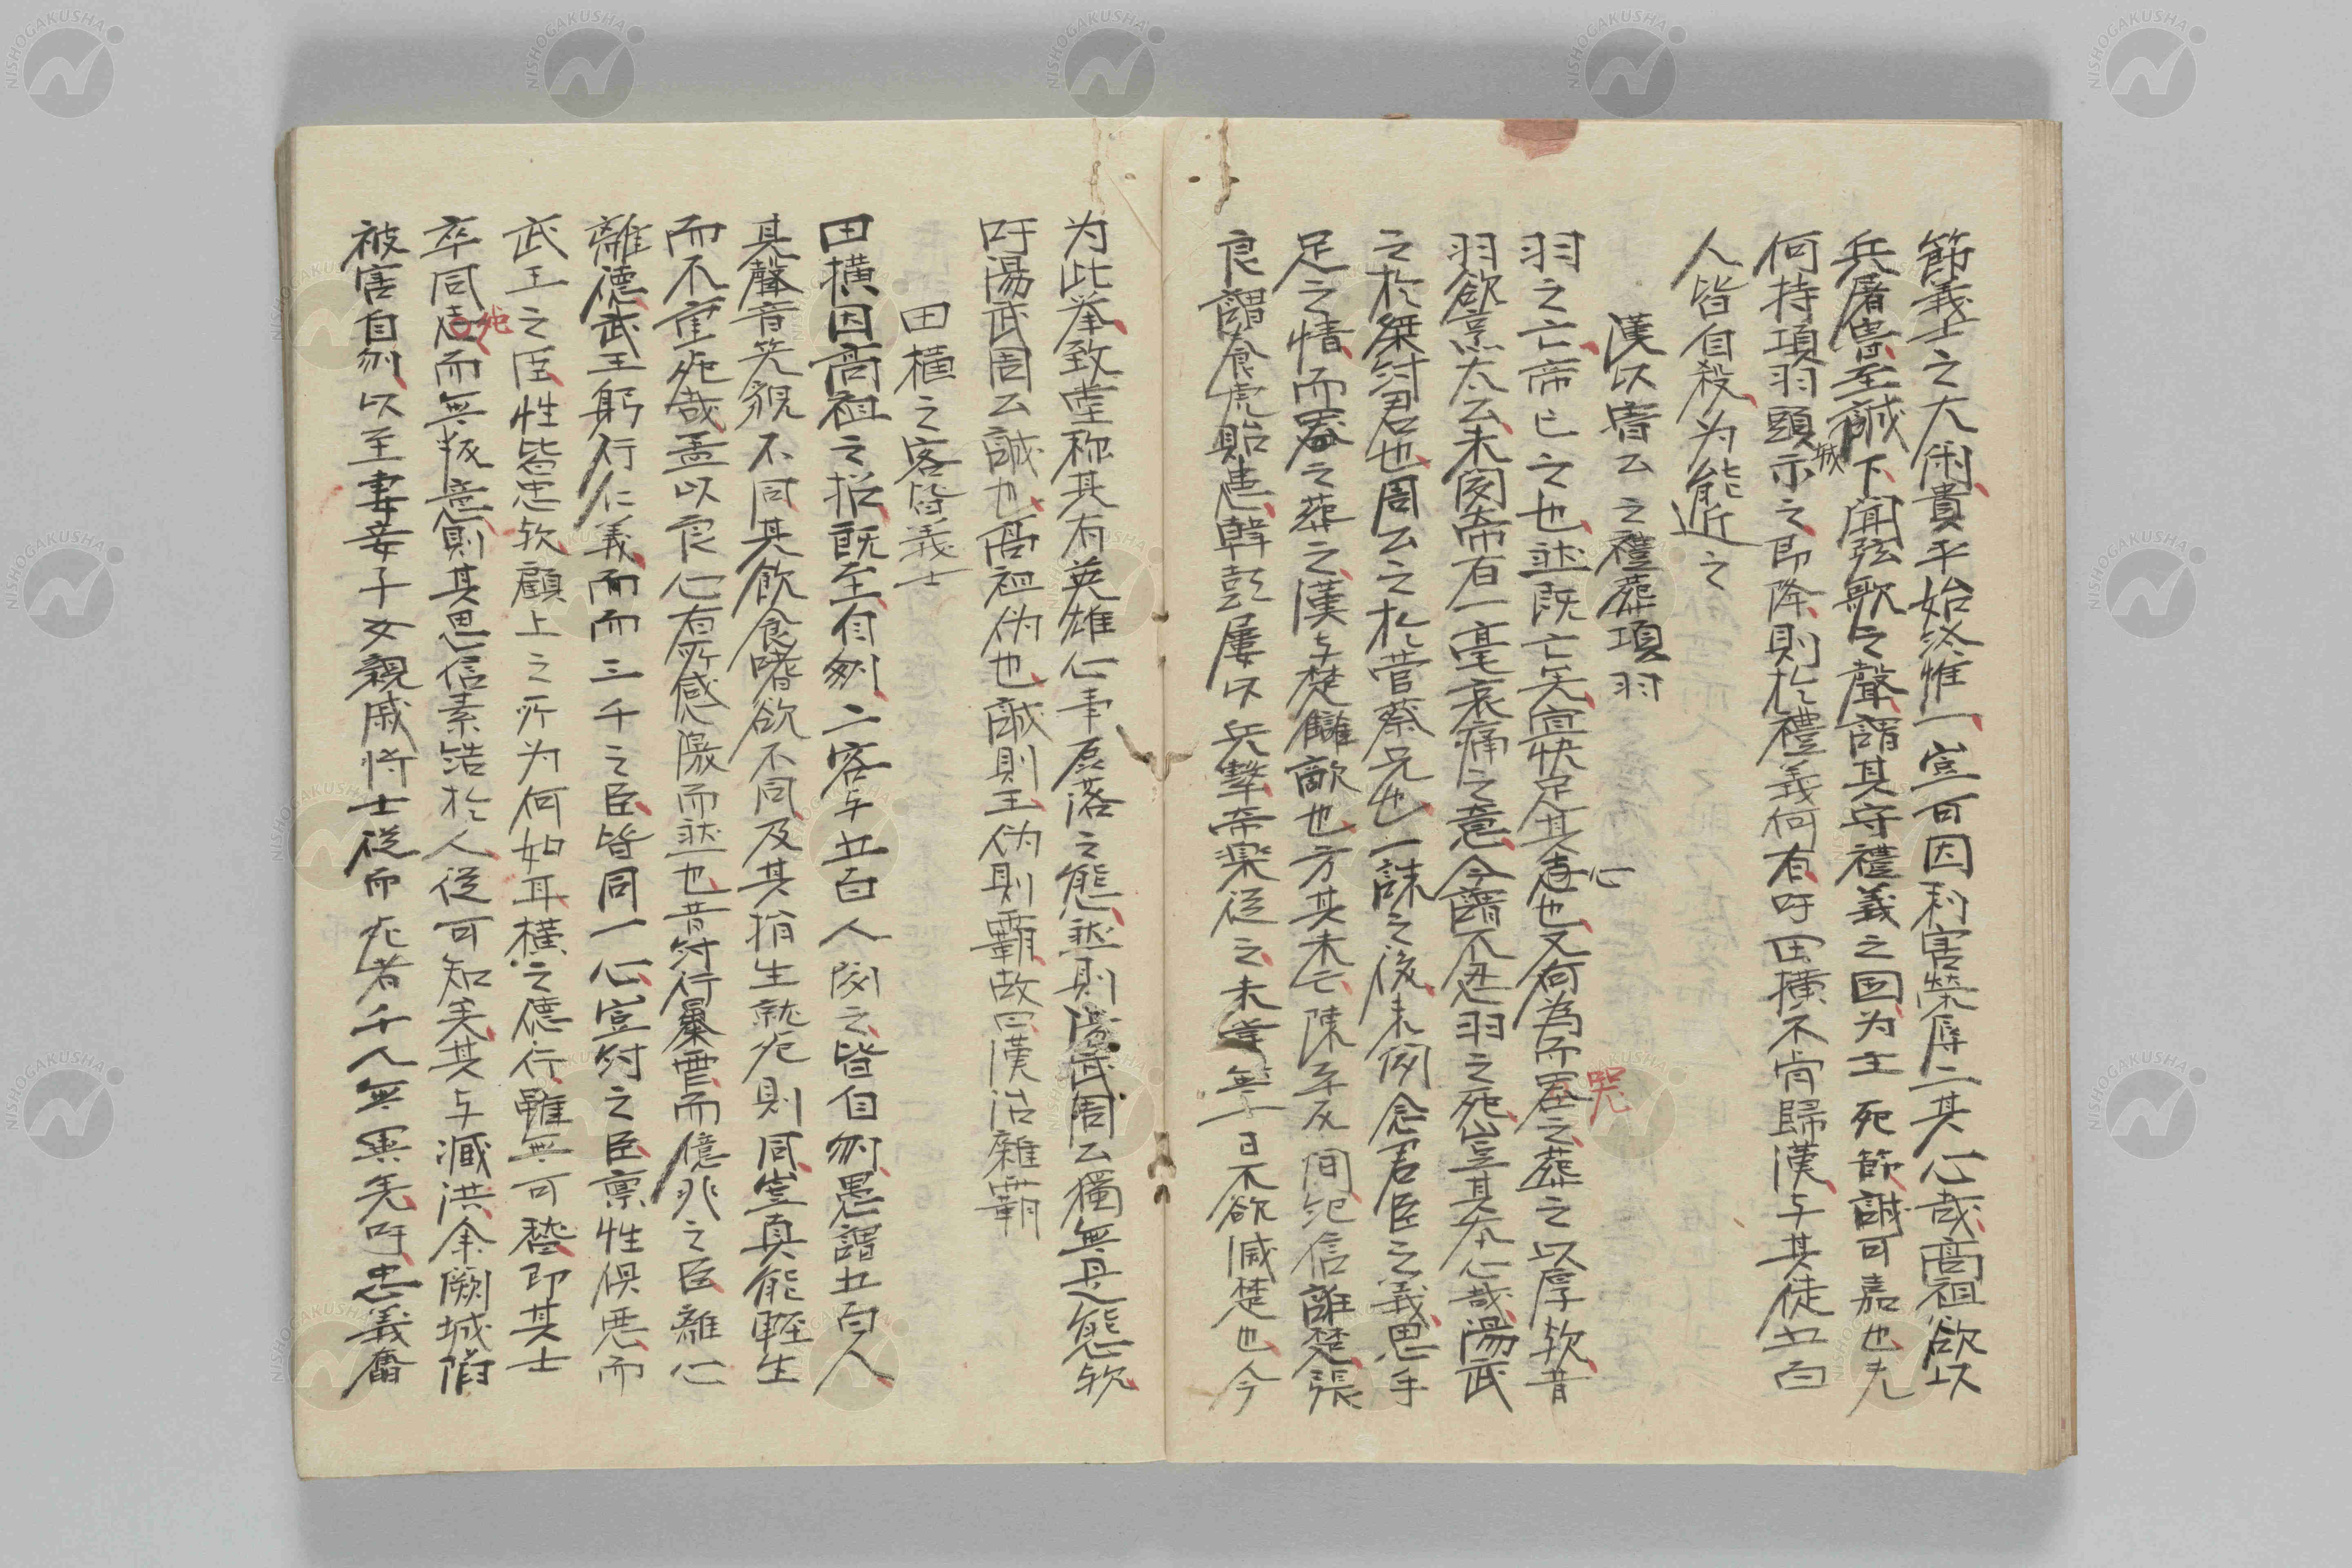 節義士之大閑貴乎始終惟一豈可因利害榮辱二其心哉高祖欲以
兵屠魯至誠下聞弦歌之聲謂其守禮義之国为主死節誠可嘉也尤
城
何持項羽頭示之即降則於禮義何有吁田横不肯歸漢与其徒五百
人皆自殺为能近之
漢以魯公之禮葬項羽
羽之亡帝已之也然既亡矣宜快足其志也又何為而哭之葬之以厚欤昔
心
哭
羽欲烹太公未聞帝有一毫哀痛之意今謂不忍羽之死豈其本心哉湯武
之於桀紂君也周公之於菅蔡兄也一誅之後未例念君臣之義思手
足之情而哭之葬之漢与楚讎敵也方其未亡陳平反間紀信誰楚張
良謂養虎貽患韓彭屢以兵擊帝樂從之未無一日不欲滅楚也今
为此举致虚称其有英雄心事磊落之態然則湯武周公獨無是態欤
吁湯武周公誠也高祖伪也誠則王伪則覇故曰漢治雜覇
田横之客皆義士
田横因高祖之招既至自刎二客与五百人聞之皆自刎愚謂五百人
其聲音笑貌不同其飲食嗜欲不同及其捐生就死則同豈真能輕生
而不重死哉盖以良心有所感激而然也昔紂行暴虐而億兆之臣離心
離德武王躬行仁義而而三千之臣皆同一心豈紂之臣稟性俱悪而
武王之臣性皆忠欤顧上之所为何如耳横之德行雖無可稽即其士
卒同志而無叛意則其恩信素結於人從可知矣其与滅洪余闕城陷
死
被害自刎以至妻妾子女親戚将士從而死者千人無異矣吁忠義奮